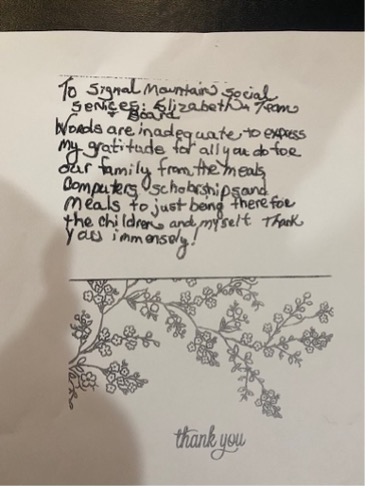 To Signal Mountain Social
Services: Elizabeth & Team
& Board
Words are inadequate to express
my gratitude for all you do for
our family from the meals,
computers, scholarships and
meals to just being there for
the children and myself Thank
you immensely!
thank you